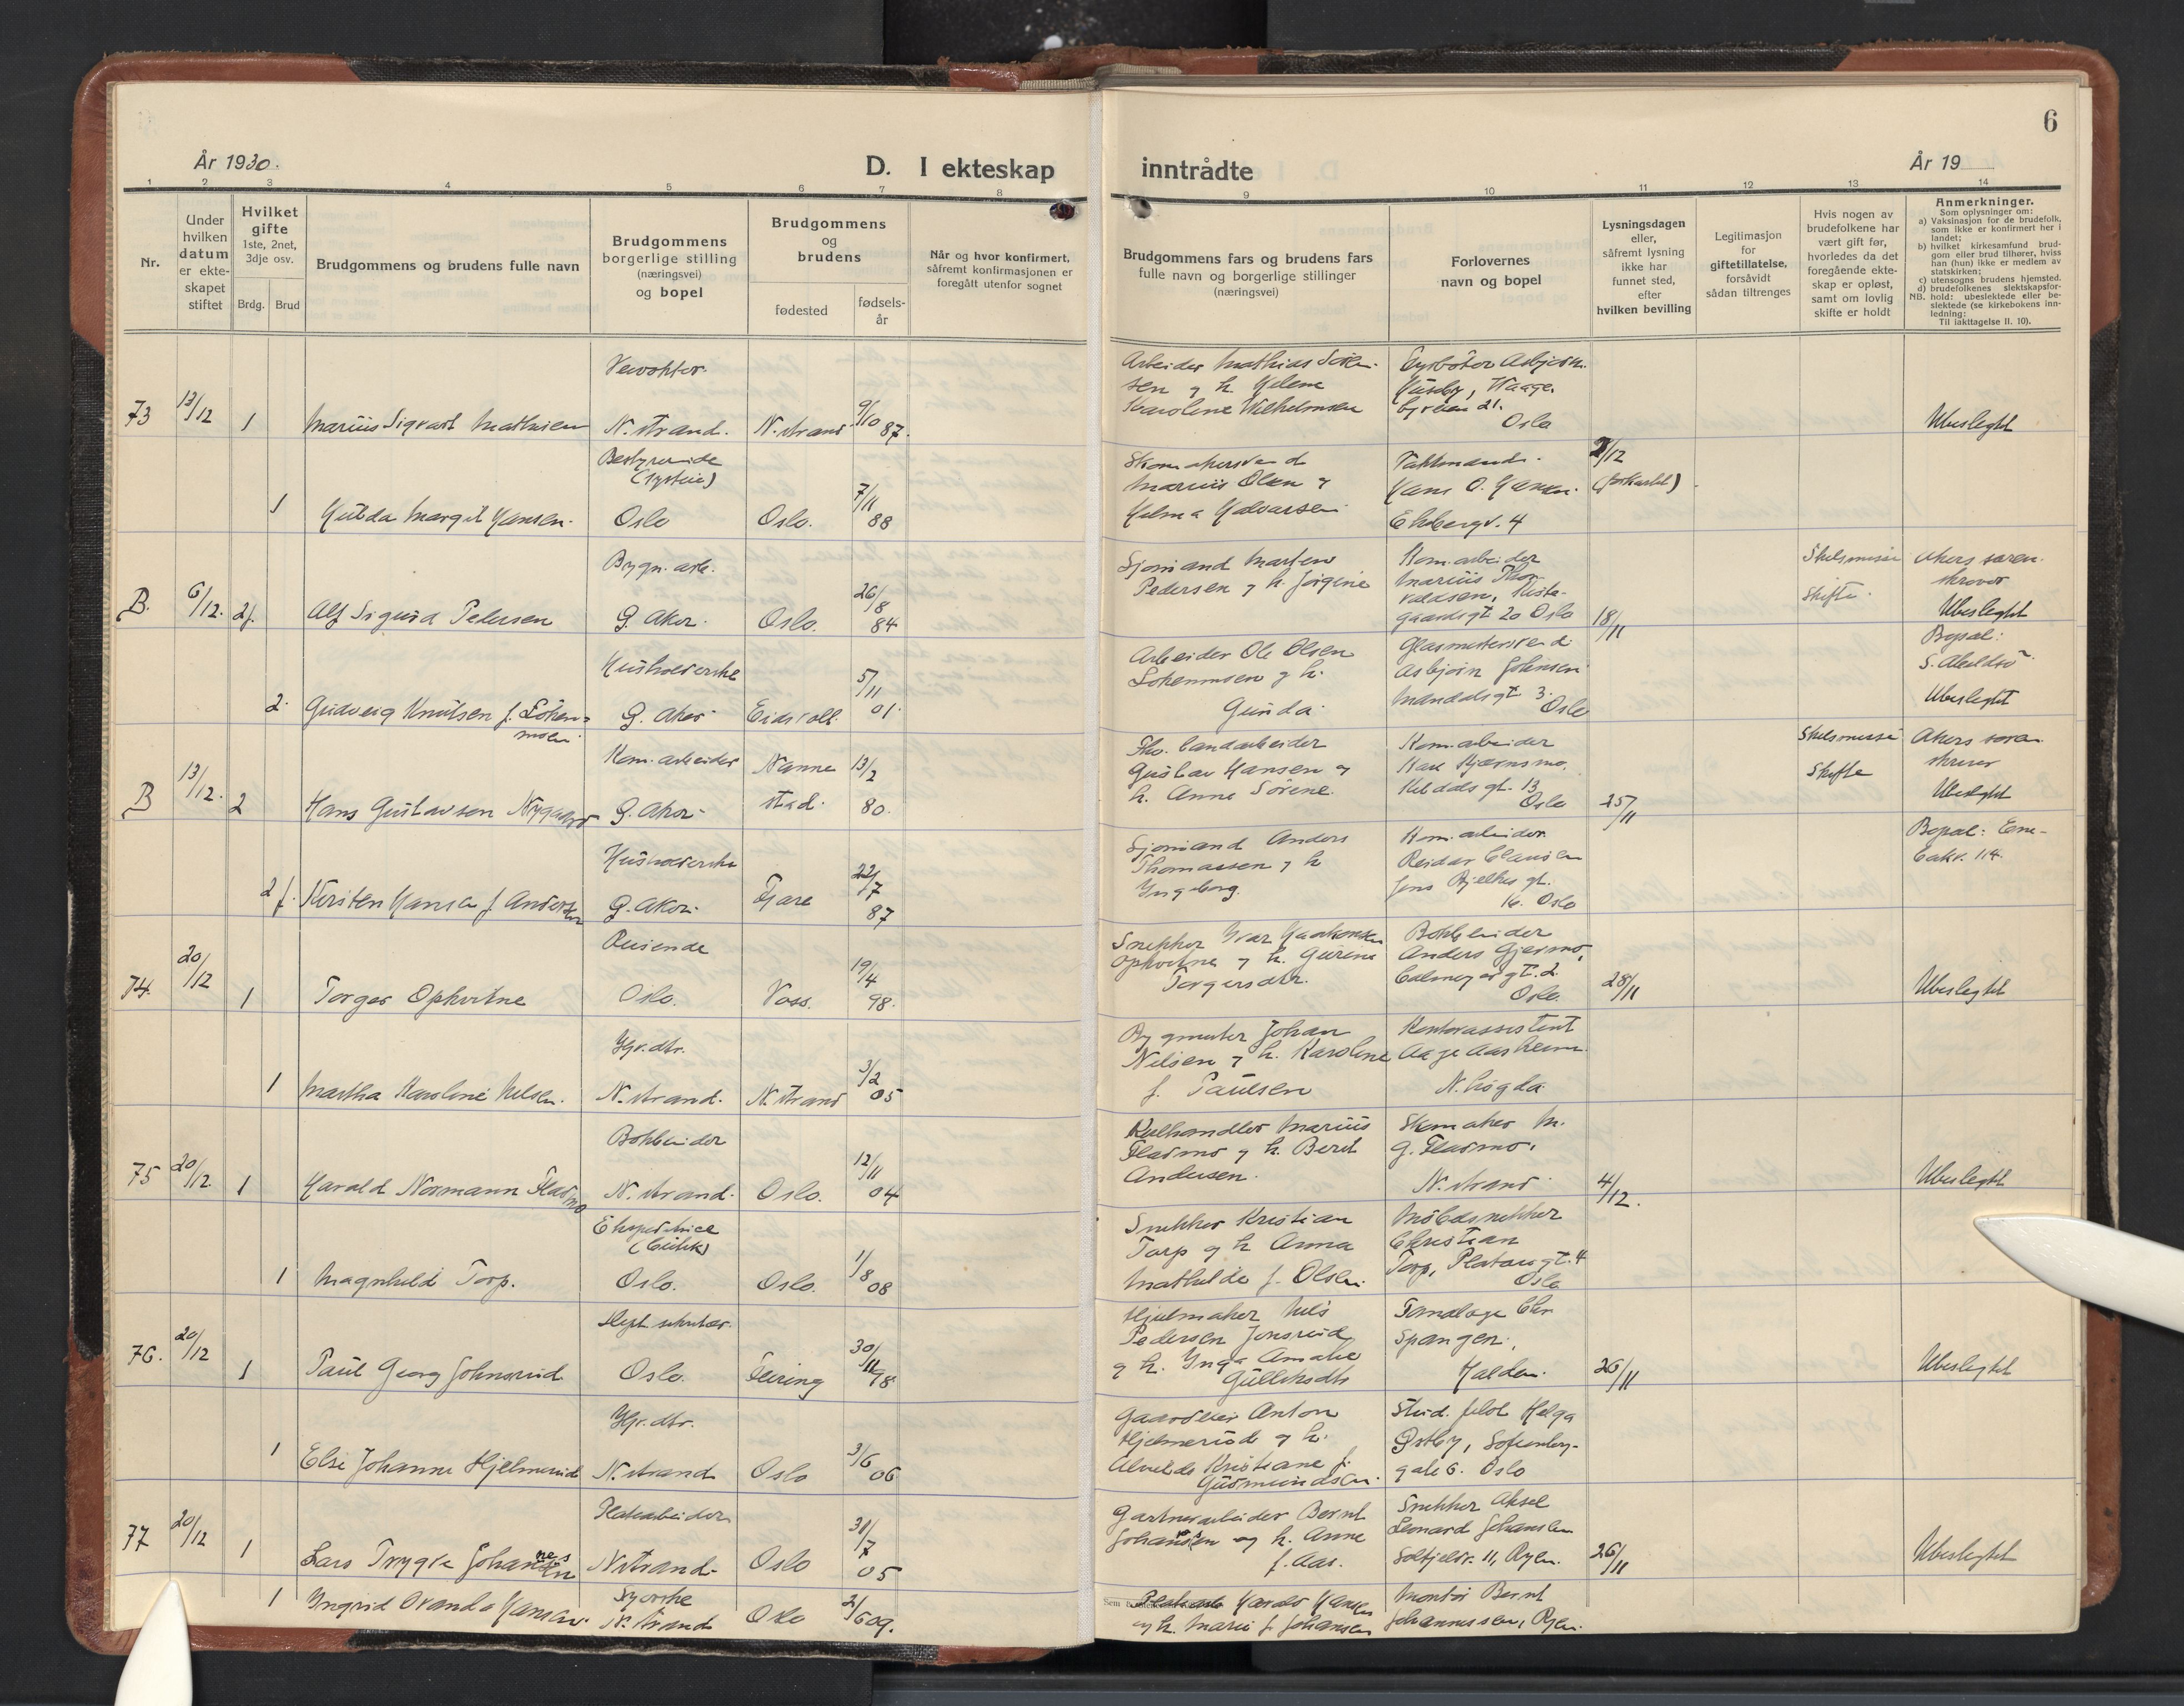 6
År 1930.
D. I ekteskap inntrådte
År 19
1 2 3 4 5 6 7 8 9 10 11 12 13 14
Nr.
Under
hvilken
datum
er ekte-
skapet
stiftet
Hvilket
gifte
1ste, 2net,
3dje osv.
Brdg. Brud
Brudgommens og brudens fulle navn
Brudgommens
borgerlige stilling
(næringsvei)
og bopel
Brudgommens
og
brudens
fødested
fødsels-
år
Når og hvor konfirmert,
såfremt konfirmasjonen er
foregått utenfor sognet
Brudgommens fars og brudens fars
fulle navn og borgerlige stillinger
(næringsvei)
Forlovernes
navn og bopel
Lysningsdagen
eller,
såfremt lysning
ikke har
funnet sted,
efter
hvilken bevilling
Legitimasjon
for
giftetillatelse,
forsåvidt
sådan tiltrenges
Hvis nogen av
brudefolkene har
vært gift før,
hvorledes da det
foregående ekte-
skap er opløst,
samt om lovlig
skifte er holdt
Anmerkninger.
Som oplysninger om:
a) Vaksinasjon for de brudefolk,
som ikke er konfirmert her i
landet;
b) hvilket kirkesamfund brud-
gom eller brud tilhører, hviss
han (hun) ikke er medlem av
statskirken;
c) utensogns brudens hjemsted.
d) brudefolkenes slektskapsfor-
NB. hold: ubeslektede eller be-
slektede (se kirkebokens inn-
ledning:
Til iakttagelse II. 10).
73 13/12 1 Marius Sigvart Mathisen
N. strand. N. strand 9/10 87.
Arbeider Mathias Søren-
sen og h. Helene
Karoline Wilhelmsen
byveien 21.
Oslo
Ubeslegtet
1 Hulda Margit Hansen.
Bestyrerinde
Oslo Oslo. 7/11 88
Marius Olsen og
Helma Halvorsen
Hans O. Hansen.
Ekebergv. 4
/12
B. 6/12. 2 f. Alf Sigurd Pedersen
Bygn. arb.
G. Aker. Oslo. 26/8 84
Sjømand Marten
Pedersen og h. Jørgine
Kom. arbeider
Marius Thor-
valdsen,
gaardsgt 20 Oslo
18/11
Skilsmisse
Skifte.
Akers soren-
skriver
Ubeslegtet
2. Gudveig Knutsen f. Lohen-
Husholderske
G. Aker Eidsvoll. 5/11 01.
Arbeider Ole Olsen
og h.
Gunda
Glasmestersvend
Asbjørn Johnsen
Mandalsgt. 3.
Oslo
Bopæl:
Ubeslegtet
B 13/12. 2 Hans Gustavsen Nygaard
Kom. arbeider
G. Aker Nanne
stad. 13/2 80.
Fhv. Landarbeider
Gustav Hansen og
h. Anne Sørene.
Kom. arbeider
13
Oslo
25/11
Skilsmisse
Skifte
Akers soren
skriver
Ubeslegtet
2 f. Kirsten Hansen f. Andersen
Husholderske
G. Aker. Fjære 22/7 87
Sjømand Anders
Thomassen og h
Ingeborg.
Kom. arbeider.
Reidar Clausen
Jens Bjelkes gt.
16. Oslo
Bopæl: Ene-
bakv. 114.
74. 20/12 1 Torger Opheitne
Reisende
Oslo. Voss. 19/4 98.
Snekker Ivar Haakonsen
og h. Gurine
Torgersdtr.
Bokbinder
Anders Gjesmo,
Calmeyersgt. 2.
Oslo.
28/11
Ubeslegtet
1 Martha Karoline Nilsen.
Hjv. dtr.
N. strand. N. strand 3/2 05
Bygmester Johan
Nilsen og h. Karoline
f. Paulsen
Kontorassistent
Aage Aasheim
N. høgda
75 20/12. 1 Harald Normann Fladmo
Bokbinder
N. strand. Oslo. 12/11 04
Kulhandler Marius
Fladmo og h. Berit
Andersen.
Skomaker M.
G. Fladmo.
N. strand.
4/12.
Ubeslegtet
1 Magnhild Torp.
Ekspeditrice
(butik)
Oslo. Oslo. 1/8 08
Snekker Kristian
Torp og h Anna
Mathilde f. Olsen.
Møbelsnekker
Christian
Torp, Platousgt. 4
Oslo
76. 20/12 1 Paul Georg Johnsrud
Oslo. Feiring 30/11 98
Hjulmaker Nils
Pedersen Jonsrud
og h. Inga Amalie
Gulliksdtr
Tandlæge Chr
Spangen,
Halden.
26/11
Ubeslegtet
1 Else Johanne Hjelmerud
Hjv. dtr.
N. strand Oslo 3/6 06
Gaardeier Anton
Hjelmerud og h.
Alvilde Kristiane f.
Gudmundsen.
Stud. filol Helga
Østby, Sofienberg-
gate 6. Oslo
77 20/12 1 Lars Trygve Johannessen
Platearbeider
N. strand. Oslo 31/7 05
Gartnerarbeider Bernt
Johansen og h. Anne
f. Aas.
Snekker Aksel
Leonard Johansen
Solfjeldv. 11, Ryen.
26/11
Ubeslegtet
1 Ingrid Wanda Hansen.
Syerske
N. strand Oslo 2/6 09.
Harald Hansen
og h. Marie f. Johansen
Montør Bernt
Johannessen, Ryen.